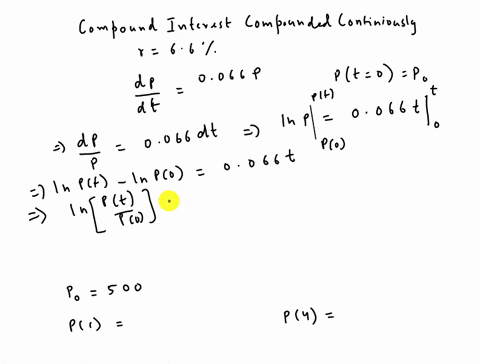 Compound Interest Compounded Continiously
r = 6.6%
dp/dt = 0.066 P    P(t=0) = P₀
⇒ dP/P = 0.066 dt ⇒ ln P |_{P(0)}^{P(t)} = 0.066 t |_0^t
⇒ ln P(t) - ln P(0) = 0.066 t
⇒ ln [P(t)/P(0)]
P₀ = 500
P(1) =    P(4) =